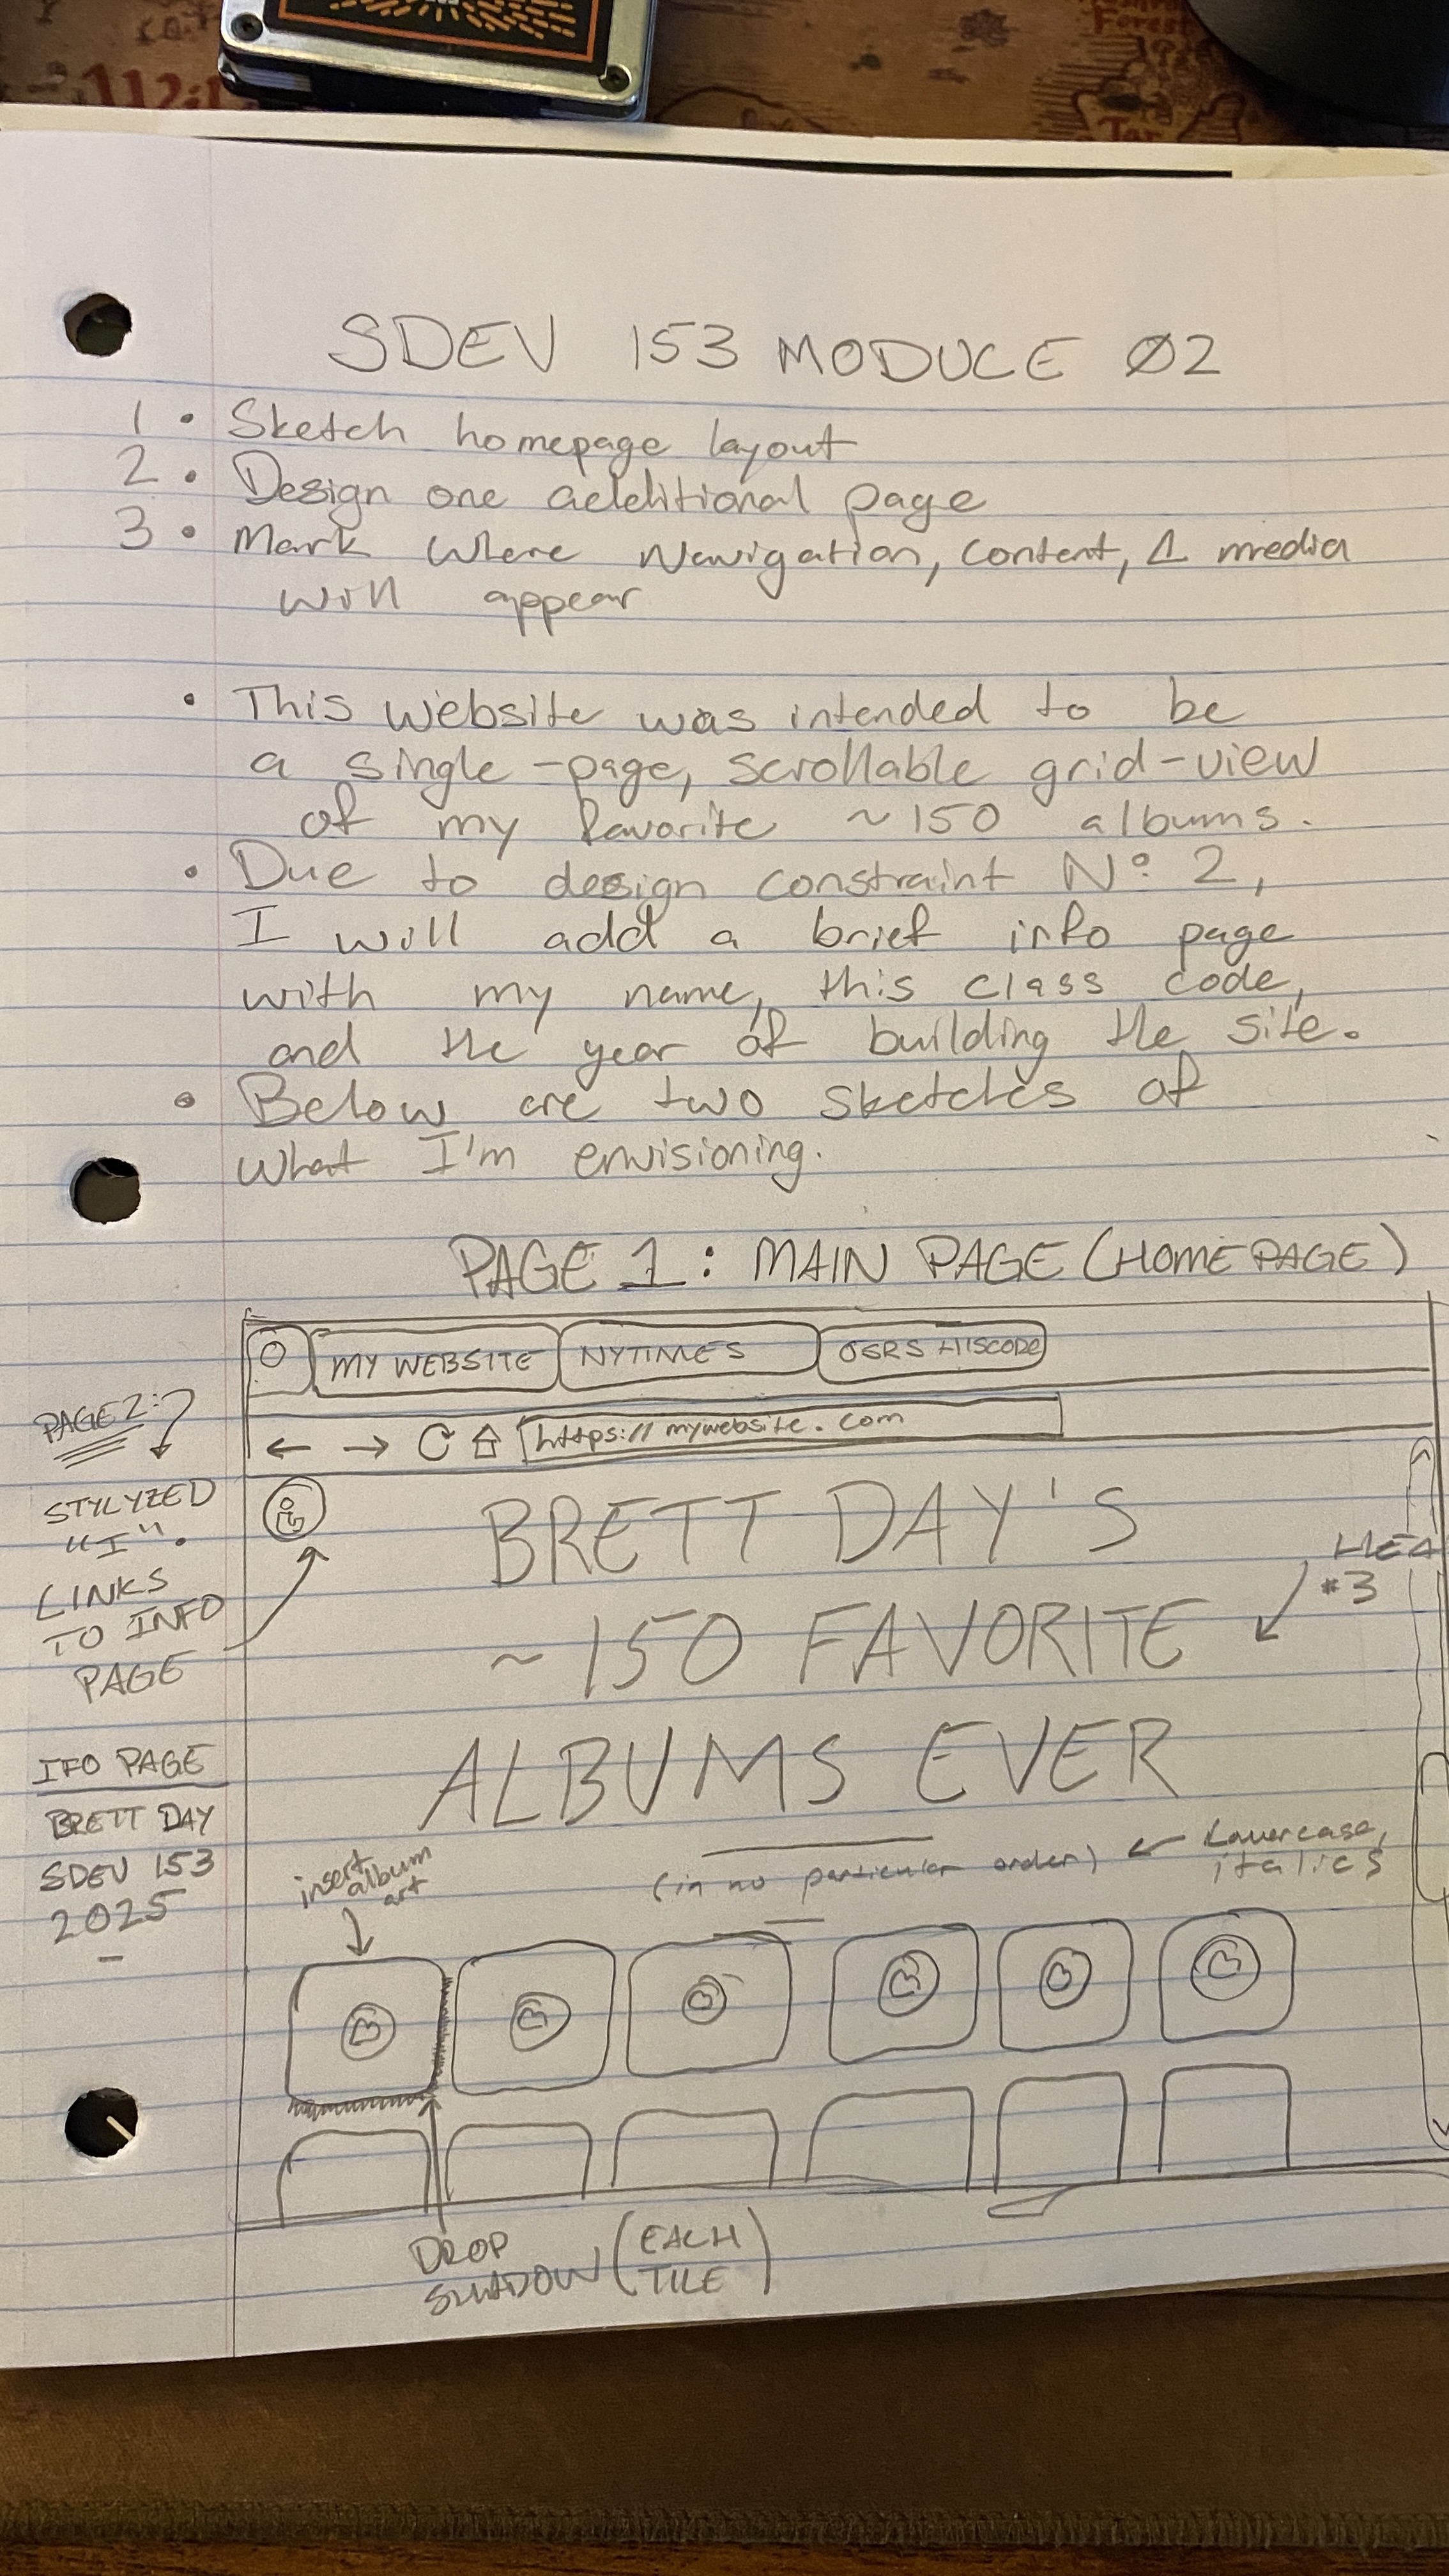 112
Forest
Tar
SDEV 153 MODULE Ø2
1 • Sketch homepage layout
2 • Design one additional page
3 • Mark where Navigation, content, & media
will appear
• This website was intended to be
a single-page, scrollable grid-view
of my favorite ~150 albums.
• Due to design constraint Nº 2,
I will add a brief info page
with my name, this class code,
and the year of building the site.
• Below are two sketches of
what I'm envisioning.
PAGE 1: MAIN PAGE (HOMEPAGE)
MY WEBSITE NYTIMES OSRS HISCORE
← → https://mywebsite.com
PAGE 2:
STYLYZED
"I".
LINKS
TO INFO
PAGE
i
BRETT DAY'S
~150 FAVORITE
ALBUMS EVER
HEA
#3
IFO PAGE
BRETT DAY
SDEV 153
2025
(in no particular order) ← Lowercase,
italics
insert
album
art
DROP
SHADOW (EACH
TILE)